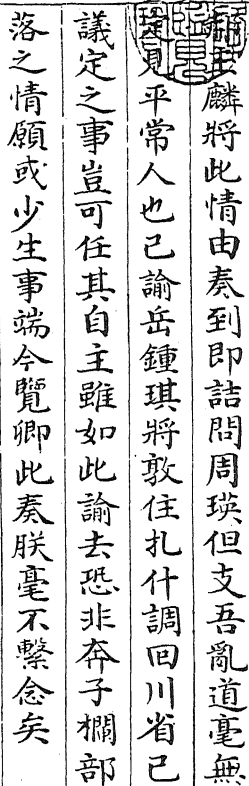 麟將此情由奏到即詰問周瑛但支吾亂道毫無
見平常人也已諭岳鍾琪將敦住扎什調回川省已
議定之事豈可任其自主雖如此諭去恐非奔子欄部
落之情願或少生事端今覽卿此奏朕毫不繫念矣